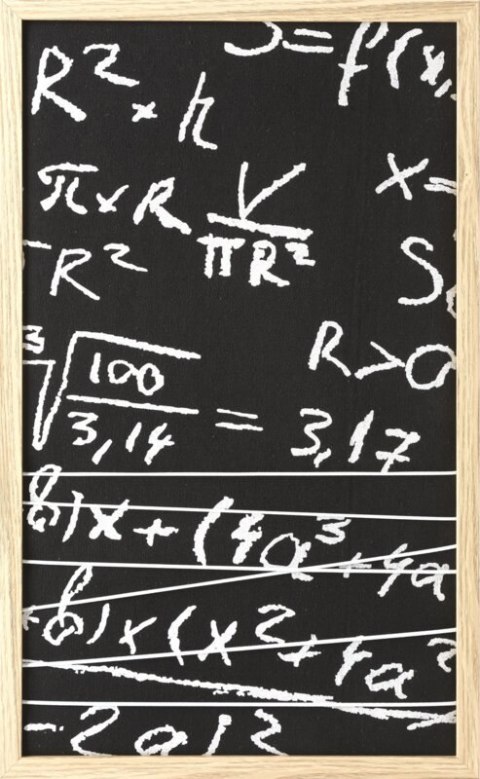 R² × h
π × R V/πR²
x =
- R²
R > 0
³√100/3,14 = 3,17
b) x + (4a³ + 4a
+ b) x (x² + 4a²
- 2a)²